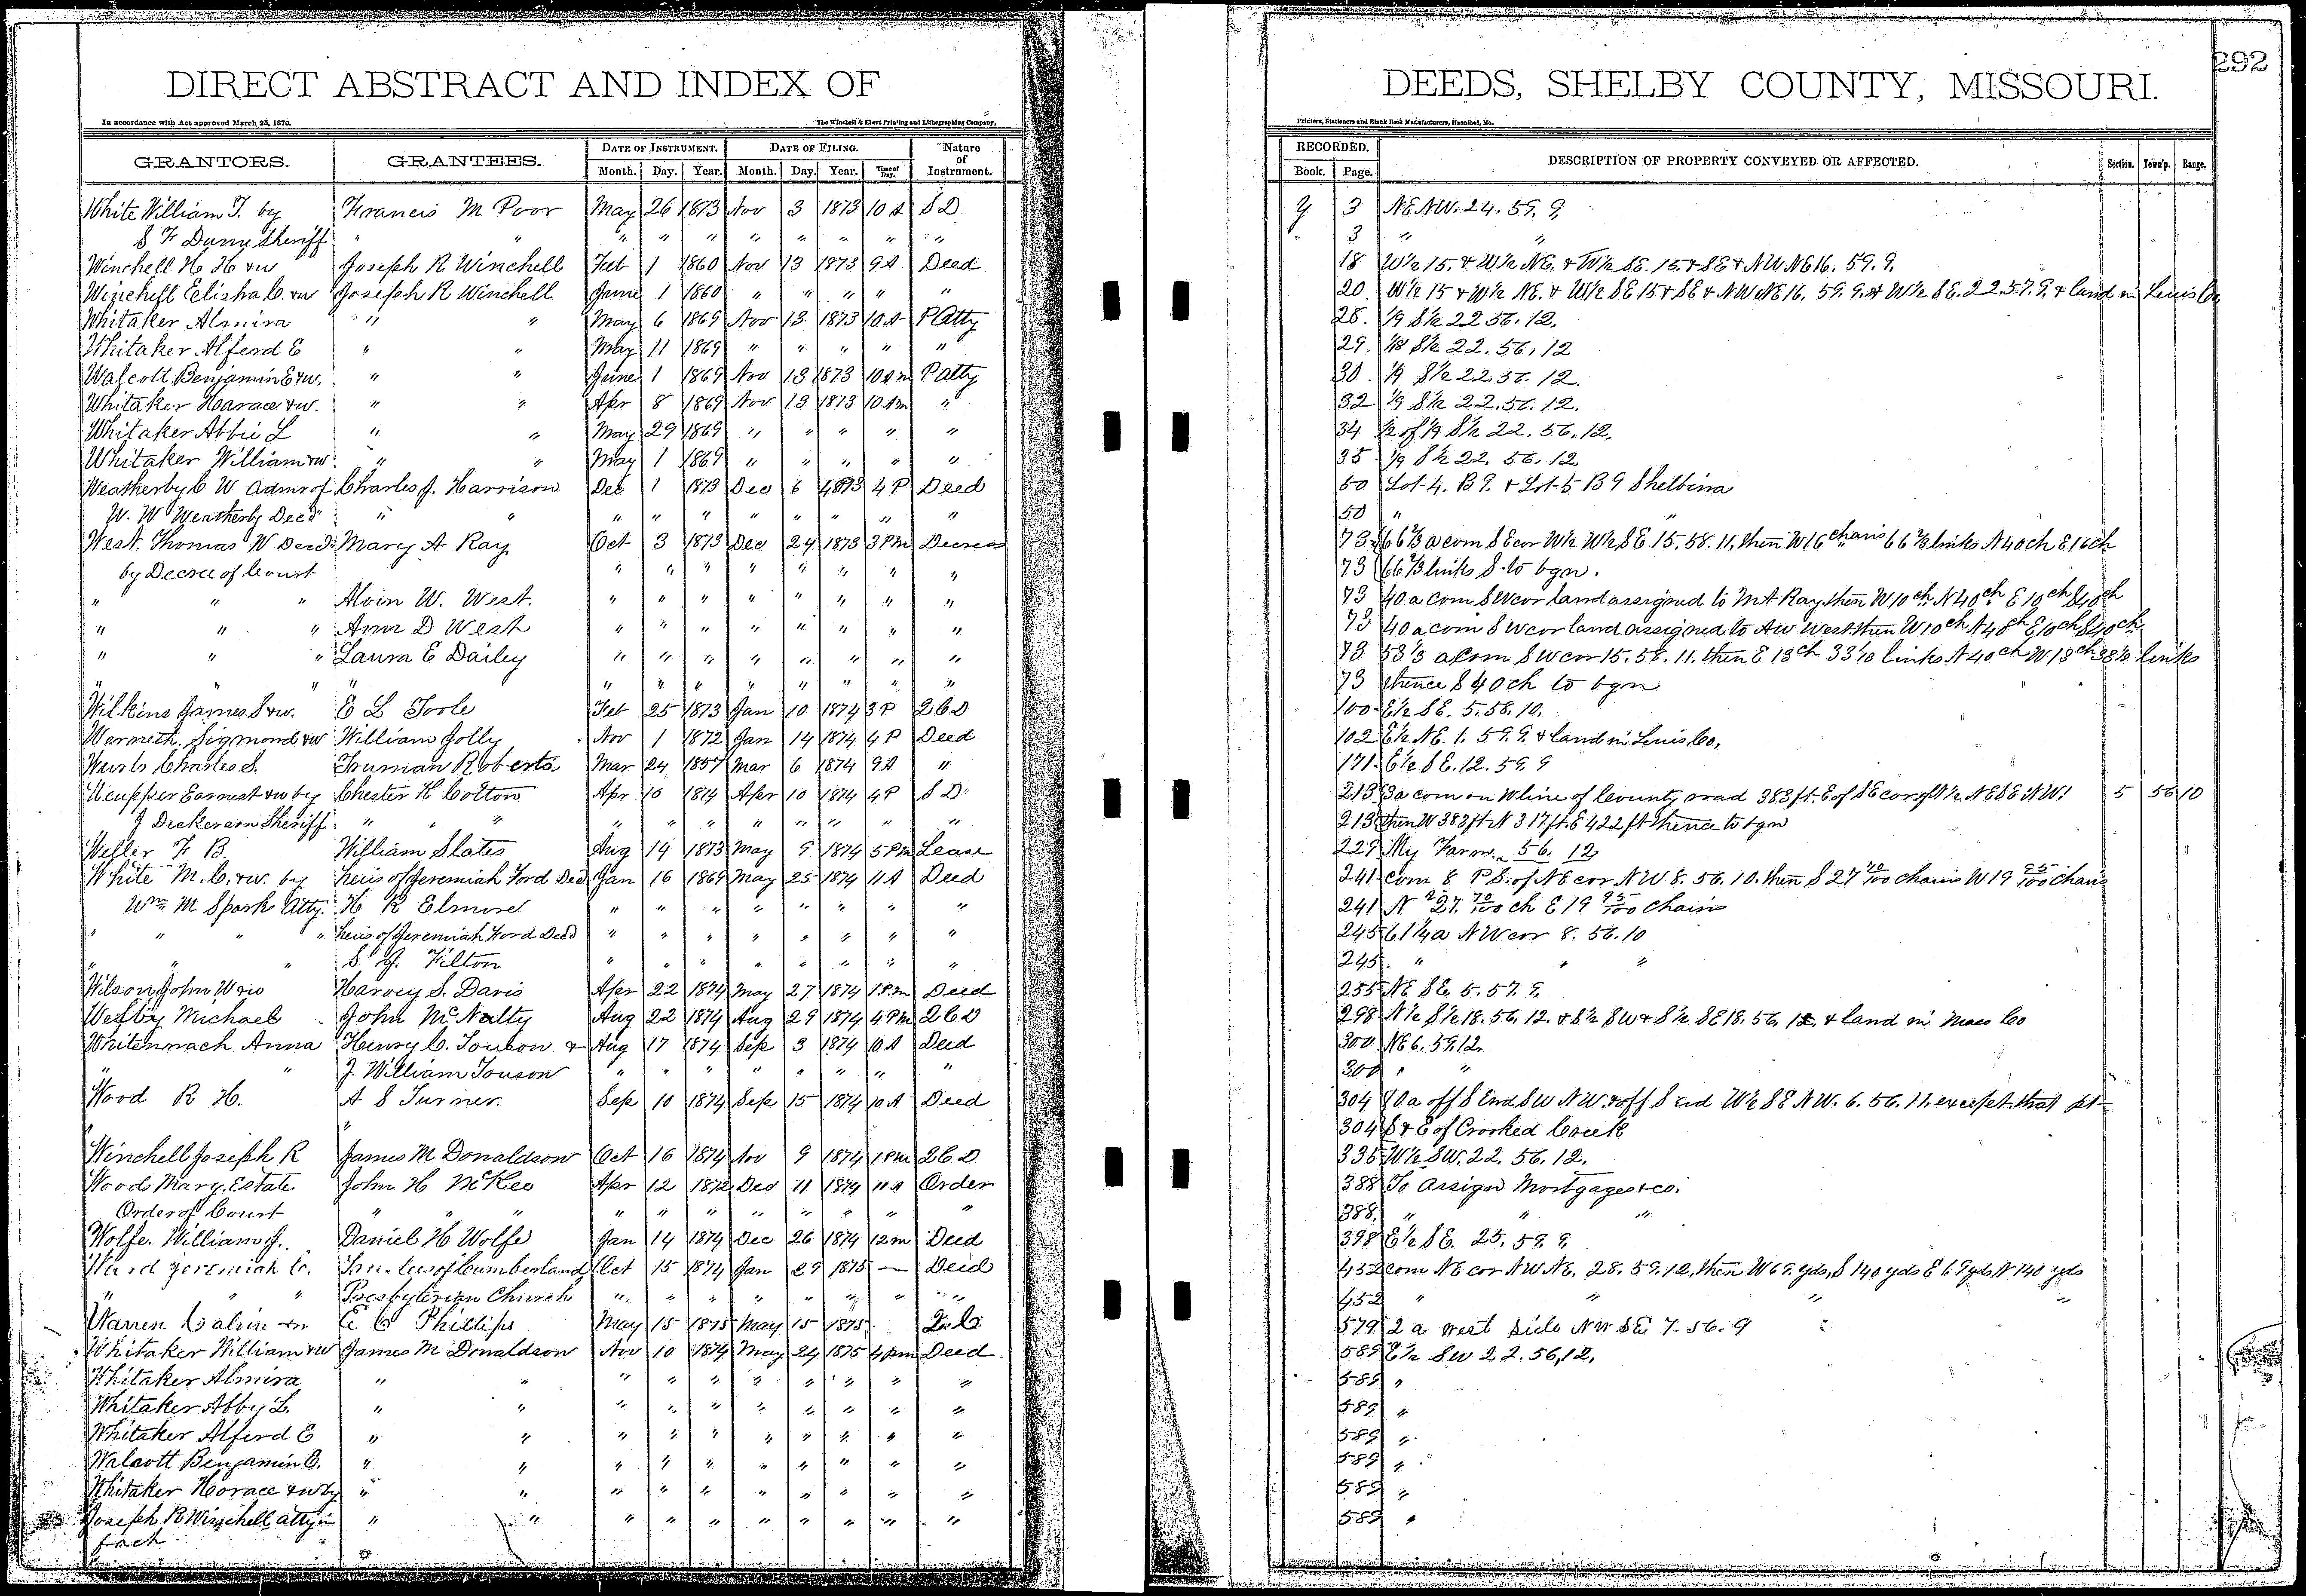 292
DIRECT ABSTRACT AND INDEX OF DEEDS, SHELBY COUNTY, MISSOURI.
In accordance with Act approved March 25, 1870. The Winchell & Ebert Printing and Lithographing Company, Printers, Stationers and Blank Book Manufacturers, Hannibal, Mo.
GRANTORS. GRANTEES. DATE OF INSTRUMENT. DATE OF FILING. Nature of Instrument. RECORDED. DESCRIPTION OF PROPERTY CONVEYED OR AFFECTED. Section. Town'p. Range.
Month. Day. Year. Month. Day. Year. Time of Day. Book. Page.
White William T. by Francis M Poor May 26 1873 Nov 3 1873 10 A S D Y 3 NE NW. 24. 59. 9.
S F Dunn Sheriff " " " " " " " " " " 3 " "
Winchell H H & w Joseph R Winchell Feb 1 1860 Nov 13 1873 9 A Deed 18 W½ 15. & W½ NE. & W½ SE. 15. & SE & NW NE 16. 59. 9.
Winchell Elisha C. & w Joseph R Winchell June 1 1860 " " " " " 20 W½ 15 & W½ NE. & W½ SE 15 & SE & NW NE 16. 59. 9. & W½ SE. 22. 57. 9. & land in Lewis Co
Whitaker Almira " " May 6 1869 Nov 13 1873 10 A P Atty 28. 1/9 S½ 22 56. 12.
Whitaker Alferd E " " May 11 1869 " " " " " 29. 1/18 S½ 22. 56. 12
Walcott Benjamin E & w. " " June 1 1869 Nov 13 1873 10 Am P atty 30. 1/9 S½ 22. 56. 12.
Whitaker Harace & w. " " Apr 8 1869 Nov 13 1873 10 Am " 32 1/9 S½ 22. 56. 12.
Whitaker Abbie L " " May 29 1869 " " " " " 34 ½ of 1/9 S½ 22. 56. 12.
Whitaker William & w " " May 1 1869 " " " " " 35. 1/9 S½ 22. 56. 12.
Weatherby C W Admr of Charles J. Harrison Dec 1 1873 Dec 6 1873 4 P Deed 50 Lot 4. B 9. & Lot 5 B 9 Shelbina
W. W Weatherby Dec'd " " " " " " " " " " 50 " "
West. Thomas W Decd. Mary A Ray Oct 3 1873 Dec 24 1873 3 Pm Decree 73 66 2/3 a com SE cor W½ W½ SE 15. 58. 11. then W 16 chains 66 2/3 links N 40 ch E 16 ch
by Decree of Court " " " " " " " " 73 66 2/3 links S. to bgn.
" " " Alvin W. West. " " " " " " " " 73 40 a com SW cor land assigned to M A Ray then W 10 ch N 40 ch E 10 ch S 40 ch
" " " Ann D West " " " " " " " " 73 40 a com SW cor land assigned to A W West. then W 10 ch N 40 ch E 10 ch S 40 ch
" " " Laura E Dailey " " " " " " " " 73 53 1/3 a com SW cor 15. 58. 11. then E 13 ch 33 1/3 links N 40 ch W 13 ch 33 1/3 links
" " " " " " " " " " " " 73 thence S 40 ch to bgn
Wilkins James S & w. E L Toole Feb 25 1873 Jan 10 1874 3 P 2 C D 100 E½ SE. 5. 58. 10.
Warmeth. Sigmond & w William Jolly Nov 1 1872 Jan 14 1874 4 P Deed 102 E½ NE. 1. 59. 9. & land in Lewis Co.
Charles S. Truman Roberts Mar 24 1857 Mar 6 1874 9 A " 171. E½ SE. 12. 59. 9
Earnest & w by Chester K Cotton Apr 10 1874 Apr 10 1874 4 P S D 213 3 a com on W line of County road 383 ft. E of SE cor of N½ NE SE NW. 5 56 10
J Dickerson Sheriff " " " " " " " " " " 213 then W 383 ft N 317 ft. E 422 ft thence to bgn
Weller F B. William Slates Aug 14 1873 May 9 1874 5 Pm Lease 229 My Farm. 56. 12
White M. C. & w. by heirs of Jeremiah Ford Decd Jan 16 1869 May 25 1874 11 A Deed 241 com 8 P S. of NE cor NW 8. 56. 10. then S 27 70/100 chains W 19 95/100 chains
Wm M Sparks Atty. H R Elmore " " " " " " " " 241 N 27. 70/100 ch E 19 95/100 chains
" " " " heirs of Jeremiah Ford Decd " " " " " " " " 245 61 ¼ a NW cor 8. 56. 10
" " " S J. Tilton " " " " " " " " 245. " " "
Wilson John W & w Harvey S. Davis Apr 22 1874 May 27 1874 1 P.m Deed 255 NE SE. 5. 57. 9.
Welby Michael John McNalty Aug 22 1874 Aug 29 1874 4 Pm 2 C D 298 N½ S½ 18. 56. 12. & S½ SW & S½ SE 18. 56. 12. & land in Maco Co
Whitenmach Anna Henry C. Touson & Aug 17 1874 Sep 3 1874 10 A Deed 300 NE 6. 59. 12.
" " J. William Touson " " " " " " " " 300 " "
Wood R H. A S Turner. Sep 10 1874 Sep 15 1874 10 A Deed 304 70 a off S End SW NW. & off S end W½ SE NW. 6. 56. 11. except that pt
" " 304 S & E of Crooked Creek
Winchell Joseph R James M Donaldson Oct 16 1874 Nov 9 1874 1 Pm 2 C D 335 W½ SW. 22. 56. 12.
Woods Mary. Estate John H McKee Apr 12 1872 Dec 11 1874 11 A Order 388 To Assign Mortgages & co.
Order of Court " " " " " " " " " " " 388. " " "
Wolfe. William J. Daniel H Wolfe Jan 14 1874 Dec 26 1874 12 m Deed 398 E½ SE. 25. 59. 9.
Jeremiah C. Trustees of Cumberland Oct 15 1874 Jan 29 1875 — Deed 452 com NE cor NW NE. 28. 59. 12, then W 69. yds, S 140 yds E 69 yds N 140 yds
" " " Presbyterian Church " " " " " " " " 452 " " " "
Warren Calvin & w E C Phillips May 15 1875 May 15 1875 579 2 a west side NW SE 7. 56. 9
Whitaker William & w James M Donaldson Nov 10 1874 May 24 1875 4 pm Deed 589 E½ SW 22. 56, 12,
Whitaker Almira " " " " " " " " " " 589 "
Whitaker Abby L. " " " " " " " " " " 589 "
Whitaker Alferd E " " " " " " " " " " 589 "
Walcott Benjamin E. " " " " " " " " " " 589 "
Whitaker Horace & w by " " " " " " " " " " 589 "
Joseph R Winchell atty in " " " " " " " " " " 589 "
fact